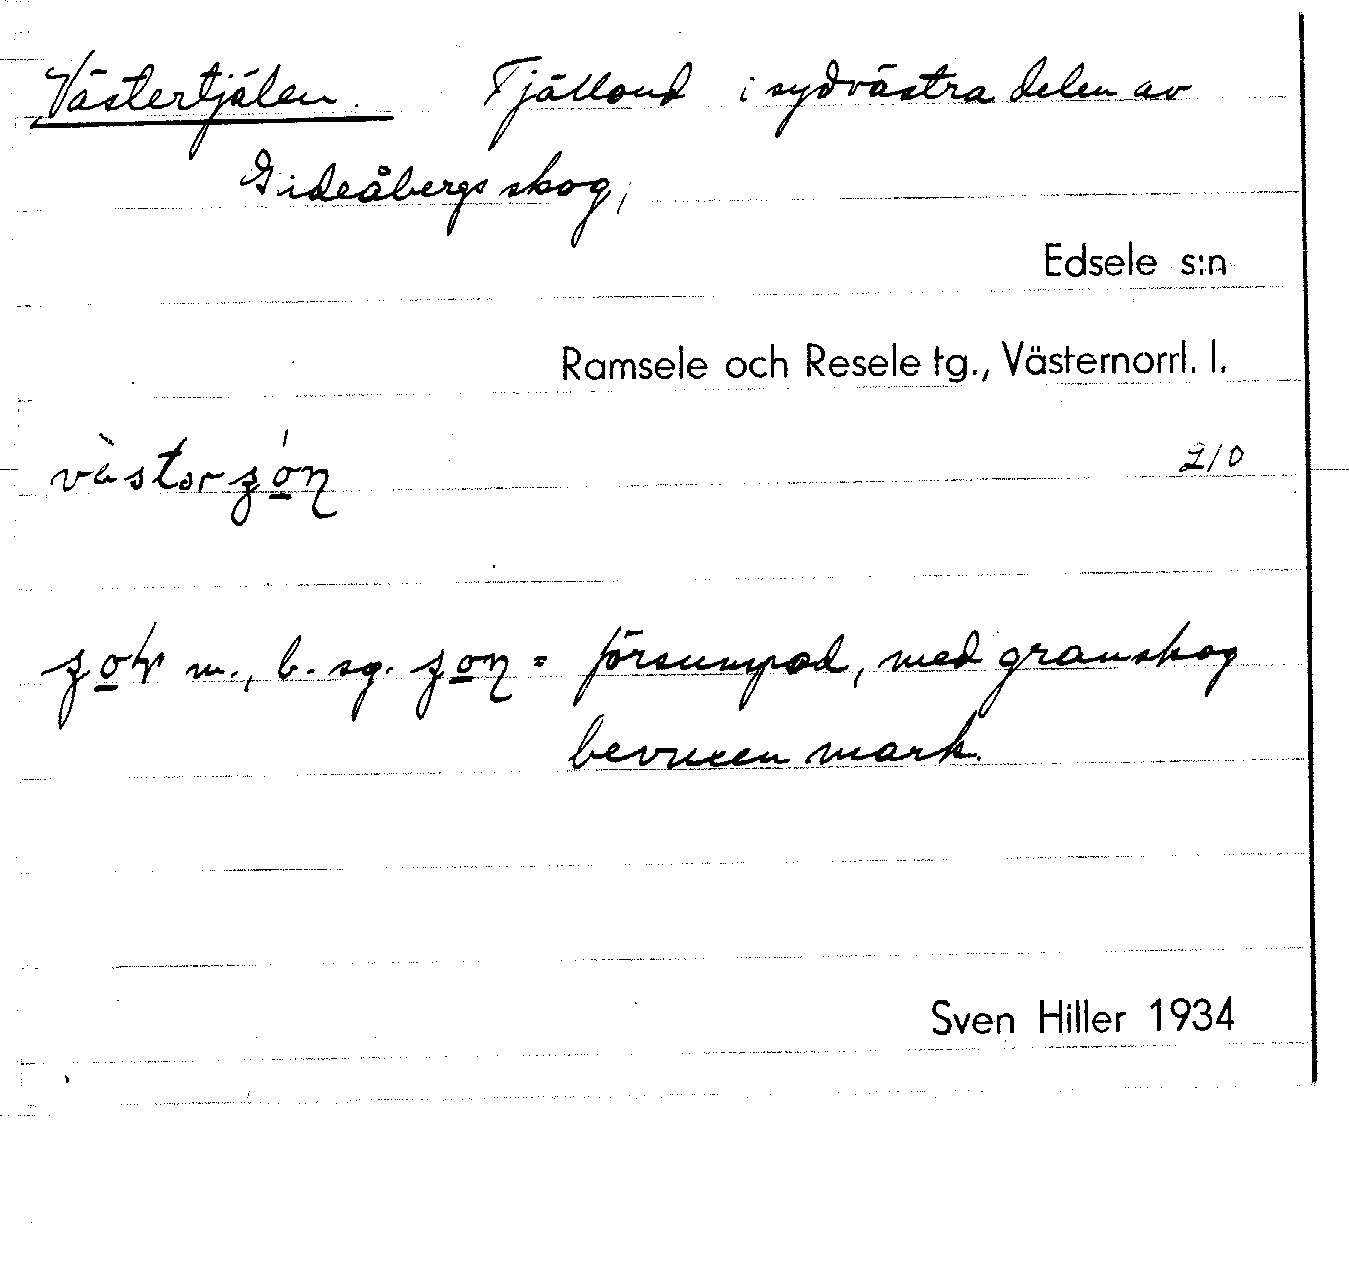 Västertjälen. Tjälland i sydvästra delen av
Gideåbergs skog,
Edsele s:n
Ramsele och Resele tg., Västernorrl. l.
210
m., b. sg. = försumpad, med granskog
bevuxen mark.
Sven Hiller 1934